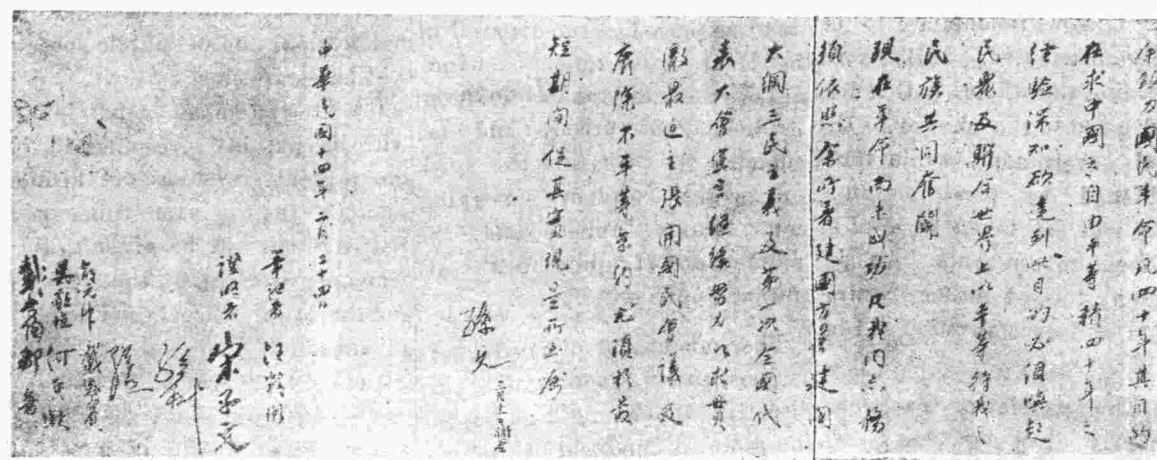 余致力國民革命凡四十年其目的
在求中國之自由平等積四十年之
經驗深知欲達到此目的必須喚起
民衆及聯合世界上以平等待我之
民族共同奮鬥
現在革命尚未成功凡我同志務
須依照余所著建國方畧建國
大綱三民主義及第一次全國代
表大會宣言繼續努力以求貫
徹最近主張開國民會議及
廢除不平等條約尤須於最
短期間促其實現是所至囑
孫文 三月十一日補簽
中華民國十四年二月二十四日
筆記者 汪精衛
證明者 宋子文
孫科
邵元沖 戴恩賽
吳敬恆 何香凝
鄒魯